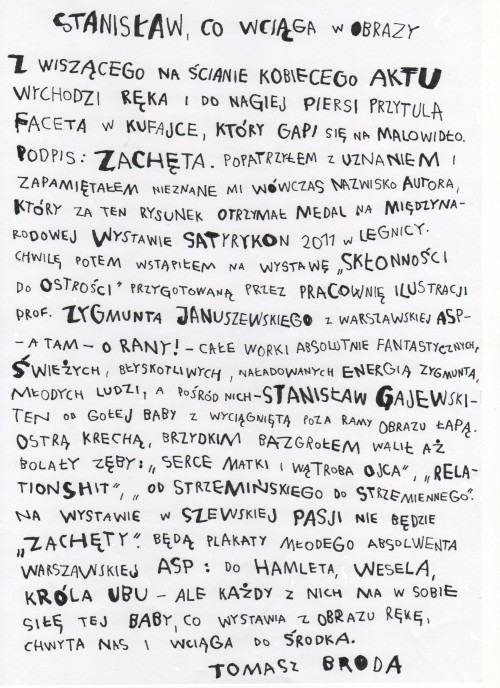 STANISŁAW, CO WCIĄGA W OBRAZY
Z WISZĄCEGO NA ŚCIANIE KOBIECEGO AKTU
WYCHODZI RĘKA I DO NAGIEJ PIERSI PRZYTULA
FACETA W KUFAJCE, KTÓRY GAPI SIĘ NA MALOWIDŁO.
PODPIS: ZACHĘTA. POPATRZYŁEM Z UZNANIEM I
ZAPAMIĘTAŁEM NIEZNANE MI WÓWCZAS NAZWISKO AUTORA,
KTÓRY ZA TEN RYSUNEK OTRZYMAŁ MEDAL NA MIĘDZYNA-
RODOWEJ WYSTAWIE SATYRYKON 2011 W LEGNICY.
CHWILĘ POTEM WSTĄPIŁEM NA WYSTAWĘ „SKŁONNOŚCI
DO OSTROŚCI" PRZYGOTOWANĄ PRZEZ PRACOWNIĘ ILUSTRACJI
PROF. ZYGMUNTA JANUSZEWSKIEGO Z WARSZAWSKIEJ ASP-
- A TAM - O RANY! - CAŁE WORKI ABSOLUTNIE FANTASTYCZNYCH,
ŚWIEŻYCH, BŁYSKOTLIWYCH, NAŁADOWANYCH ENERGIĄ ZYGMUNTA,
MŁODYCH LUDZI, A POŚRÓD NICH - STANISŁAW GAJEWSKI -
TEN OD GOŁEJ BABY Z WYCIĄGNIĘTĄ POZA RAMY OBRAZU ŁAPĄ.
OSTRĄ KRECHĄ, BRZYDKIM BAZGROŁEM WALIŁ AŻ
BOLAŁY ZĘBY: „SERCE MATKI I WĄTROBA OJCA", „RELA-
TIONSHIT", „OD STRZEMIŃSKIEGO DO STRZEMIENNEGO".
NA WYSTAWIE W SZEWSKIEJ PASJI NIE BĘDZIE
„ZACHĘTY". BĘDĄ PLAKATY MŁODEGO ABSOLWENTA
WARSZAWSKIEJ ASP: DO HAMLETA, WESELA,
KRÓLA UBU - ALE KAŻDY Z NICH MA W SOBIE
SIŁĘ TEJ BABY, CO WYSTAWIA Z OBRAZU RĘKĘ,
CHWYTA NAS I WCIĄGA DO ŚRODKA.
TOMASZ BRODA